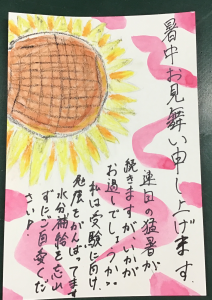 暑中お見舞い申し上げます.
連日の猛暑が
続きますがいかが
お過しでしょうか?
私は受験に向け.
勉度をがんばってます
水分補給を忘れ
ずにご自愛くだ
さい!